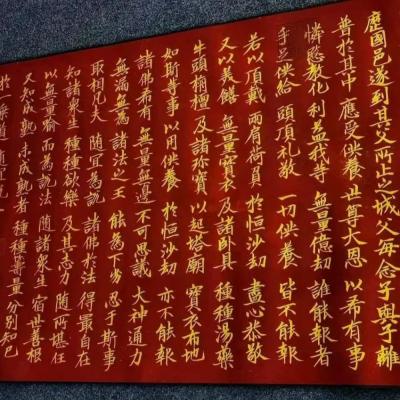 歷國邑遂到其父所止之城父每念子與子離
普於其中 應受供養 世尊大恩 以希有事
憐愍教化 利益我等 無量億劫 誰能報者
手足供給 頭頂禮敬 一切供養 皆不能報
若以頂戴 兩肩荷負 於恒沙劫 盡心恭敬
又以美饍 無量寶衣 及諸臥具 種種湯藥
牛頭栴檀 及諸珍寶 以起塔廟 寶衣布地
如斯等事 以用供養 於恒沙劫 亦不能報
諸佛希有 無量無邊 不可思議 大神通力
無漏無為 諸法之王 能為下劣 忍于斯事
取相凡夫 隨宜為說 諸佛於法 得最自在
知諸眾生 種種欲樂 及其志力 隨所堪任
以無量喻 而為說法 隨諸眾生 宿世善根
又知成熟 未成熟者 種種籌量 分別知已